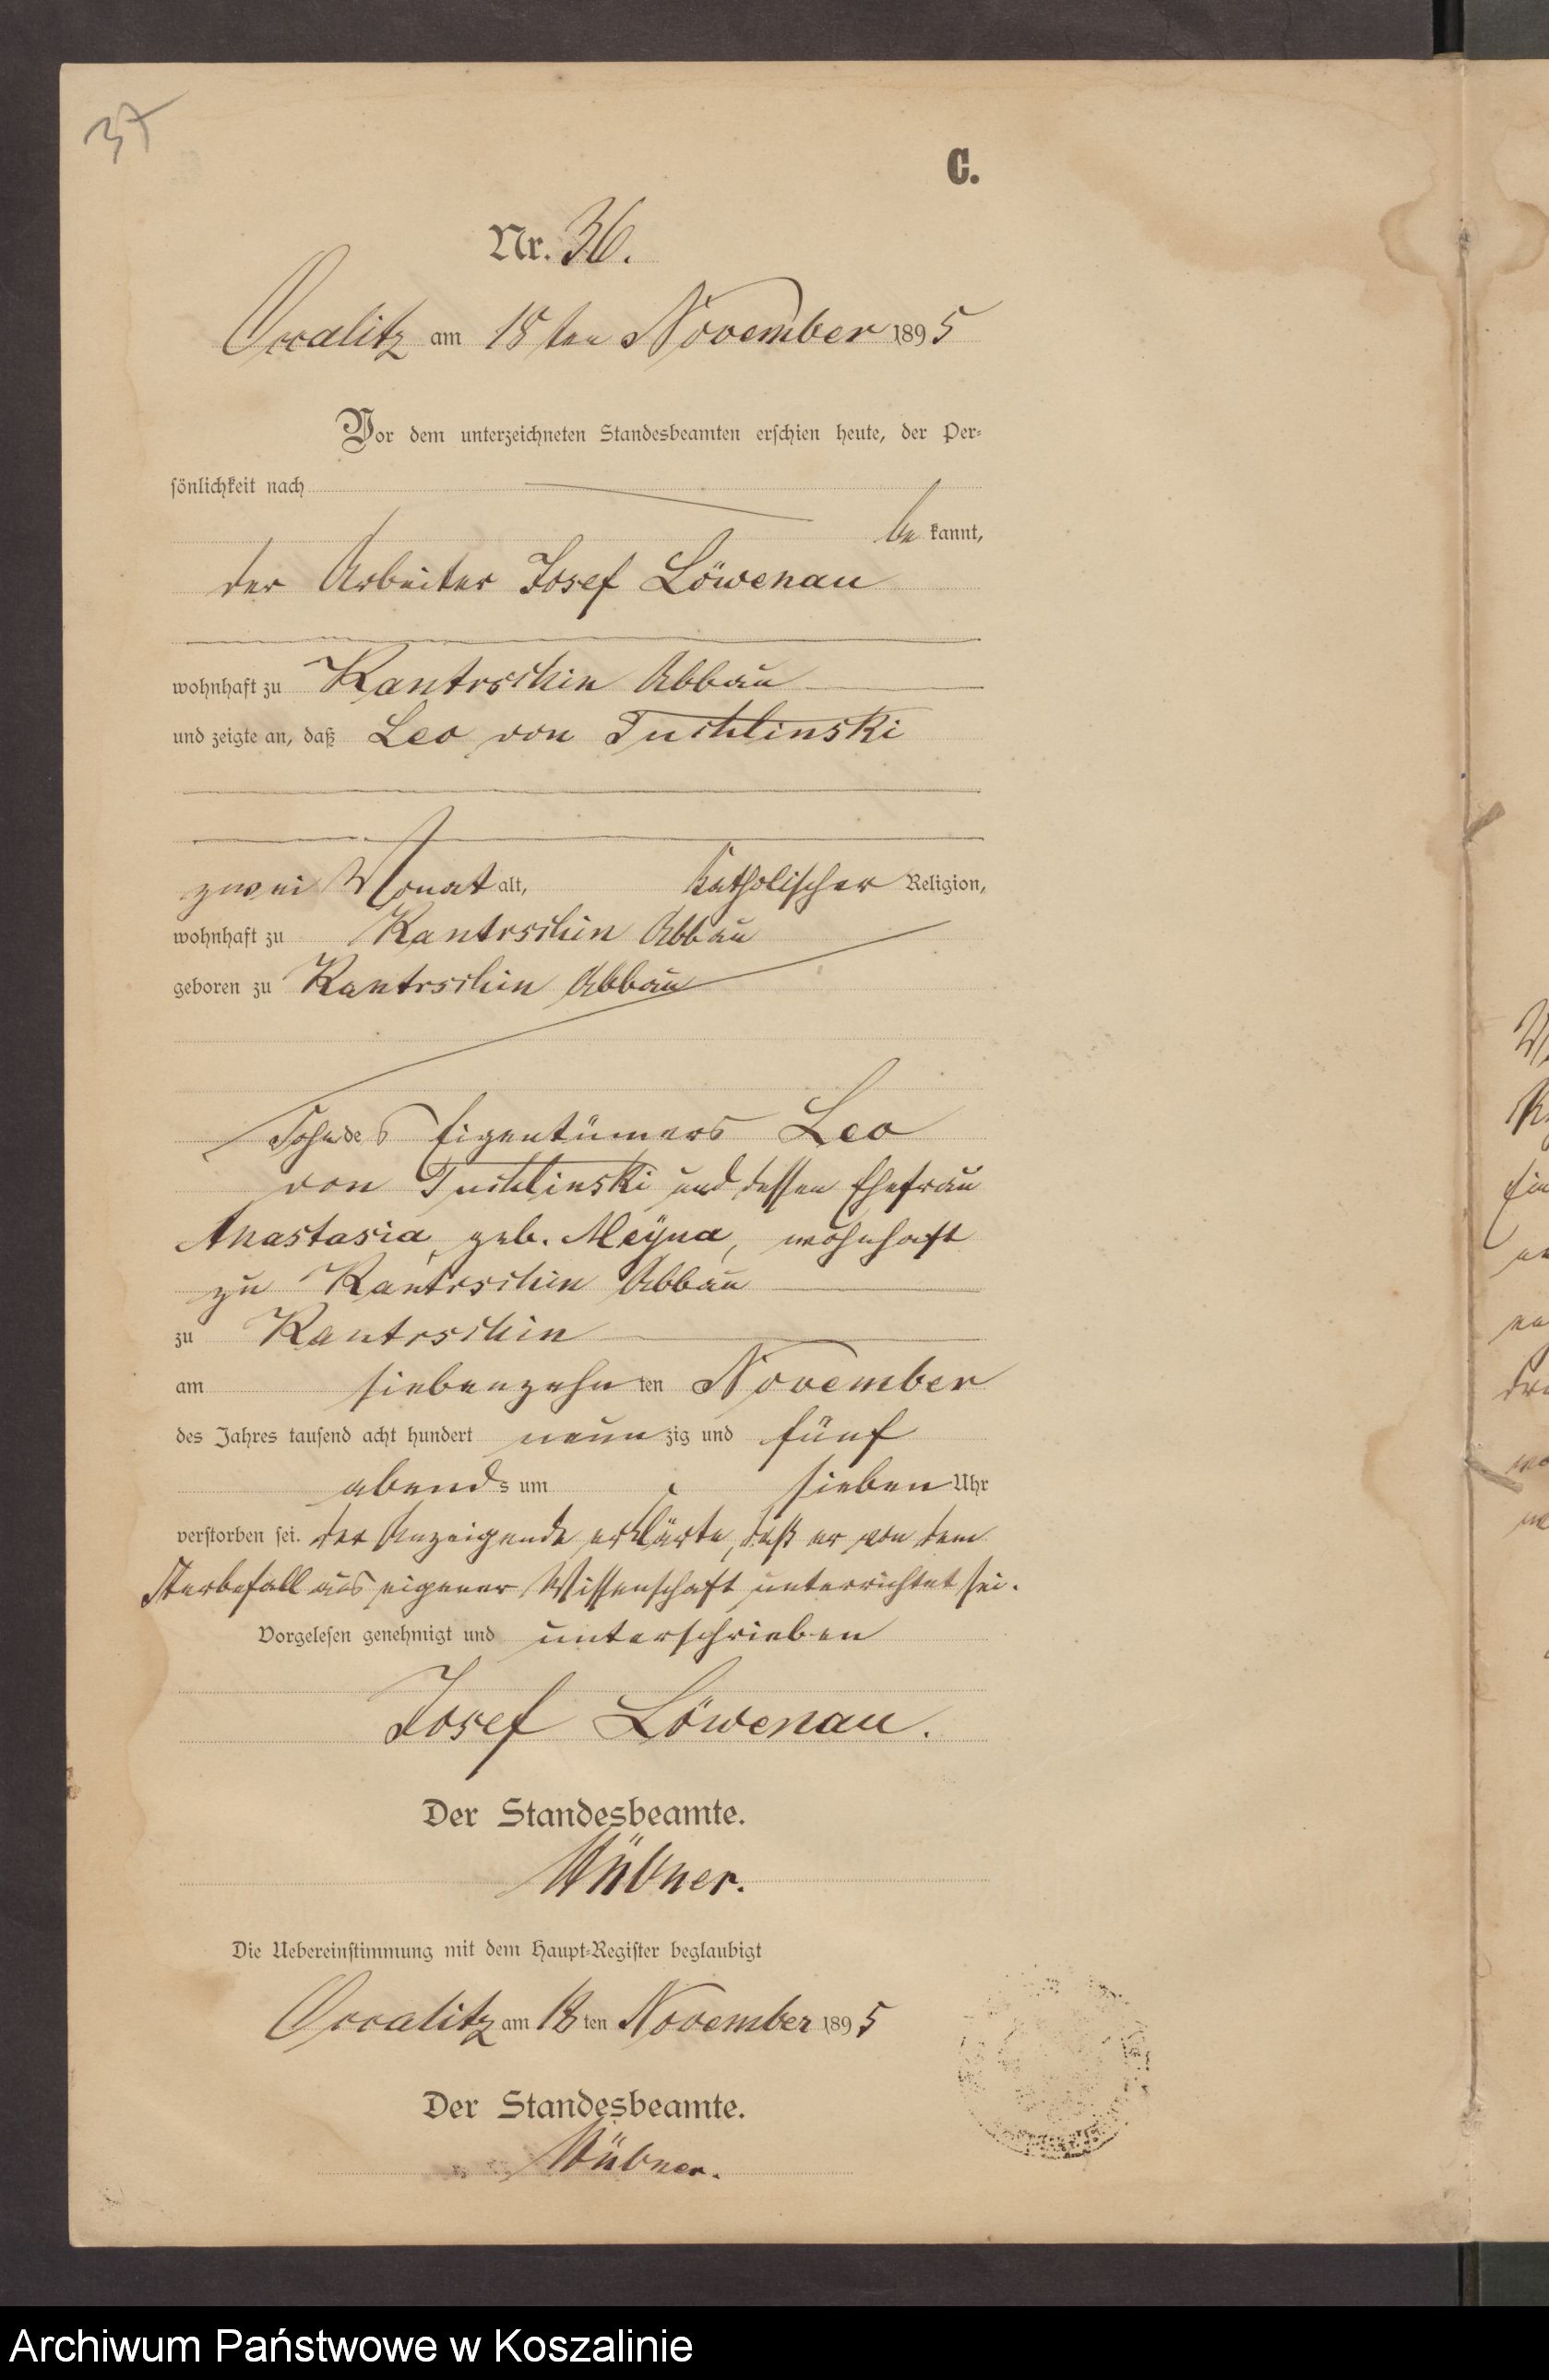 37
C.
Nr. 36.
Occalitz am 18ten November 1895
Vor dem unterzeichneten Standesbeamten erschien heute, der Per-
sönlichkeit nach
be kannt,
der Arbeiter Josef Löwenau
wohnhaft zu Kantrschin Abbau
und zeigte an, daß Leo von Tuchlinski
zwei Monat alt, katholischer Religion,
wohnhaft zu Kantrschin Abbau
geboren zu Kantrschin Abbau
Sohn des Eigentümers Leo
von Tuchlinski und dessen Ehefrau
Anastasia, geb. Meÿna, wohnhaft
zu Kantrschin Abbau
zu Kantrschin
am siebenzehn ten November
des Jahres tausend acht hundert neun zig und fünf
abends um sieben Uhr
verstorben sei. der Anzeigende erklärte, daß er von dem
Sterbefall aus eigener Wissenschaft unterrichtet sei.
Vorgelesen genehmigt und unterschrieben
Josef Löwenau.
Der Standesbeamte.
Die Uebereinstimmung mit dem Haupt-Register beglaubigt
Occalitz am 18 ten November 1895
Der Standesbeamte.
Archiwum Państwowe w Koszalinie